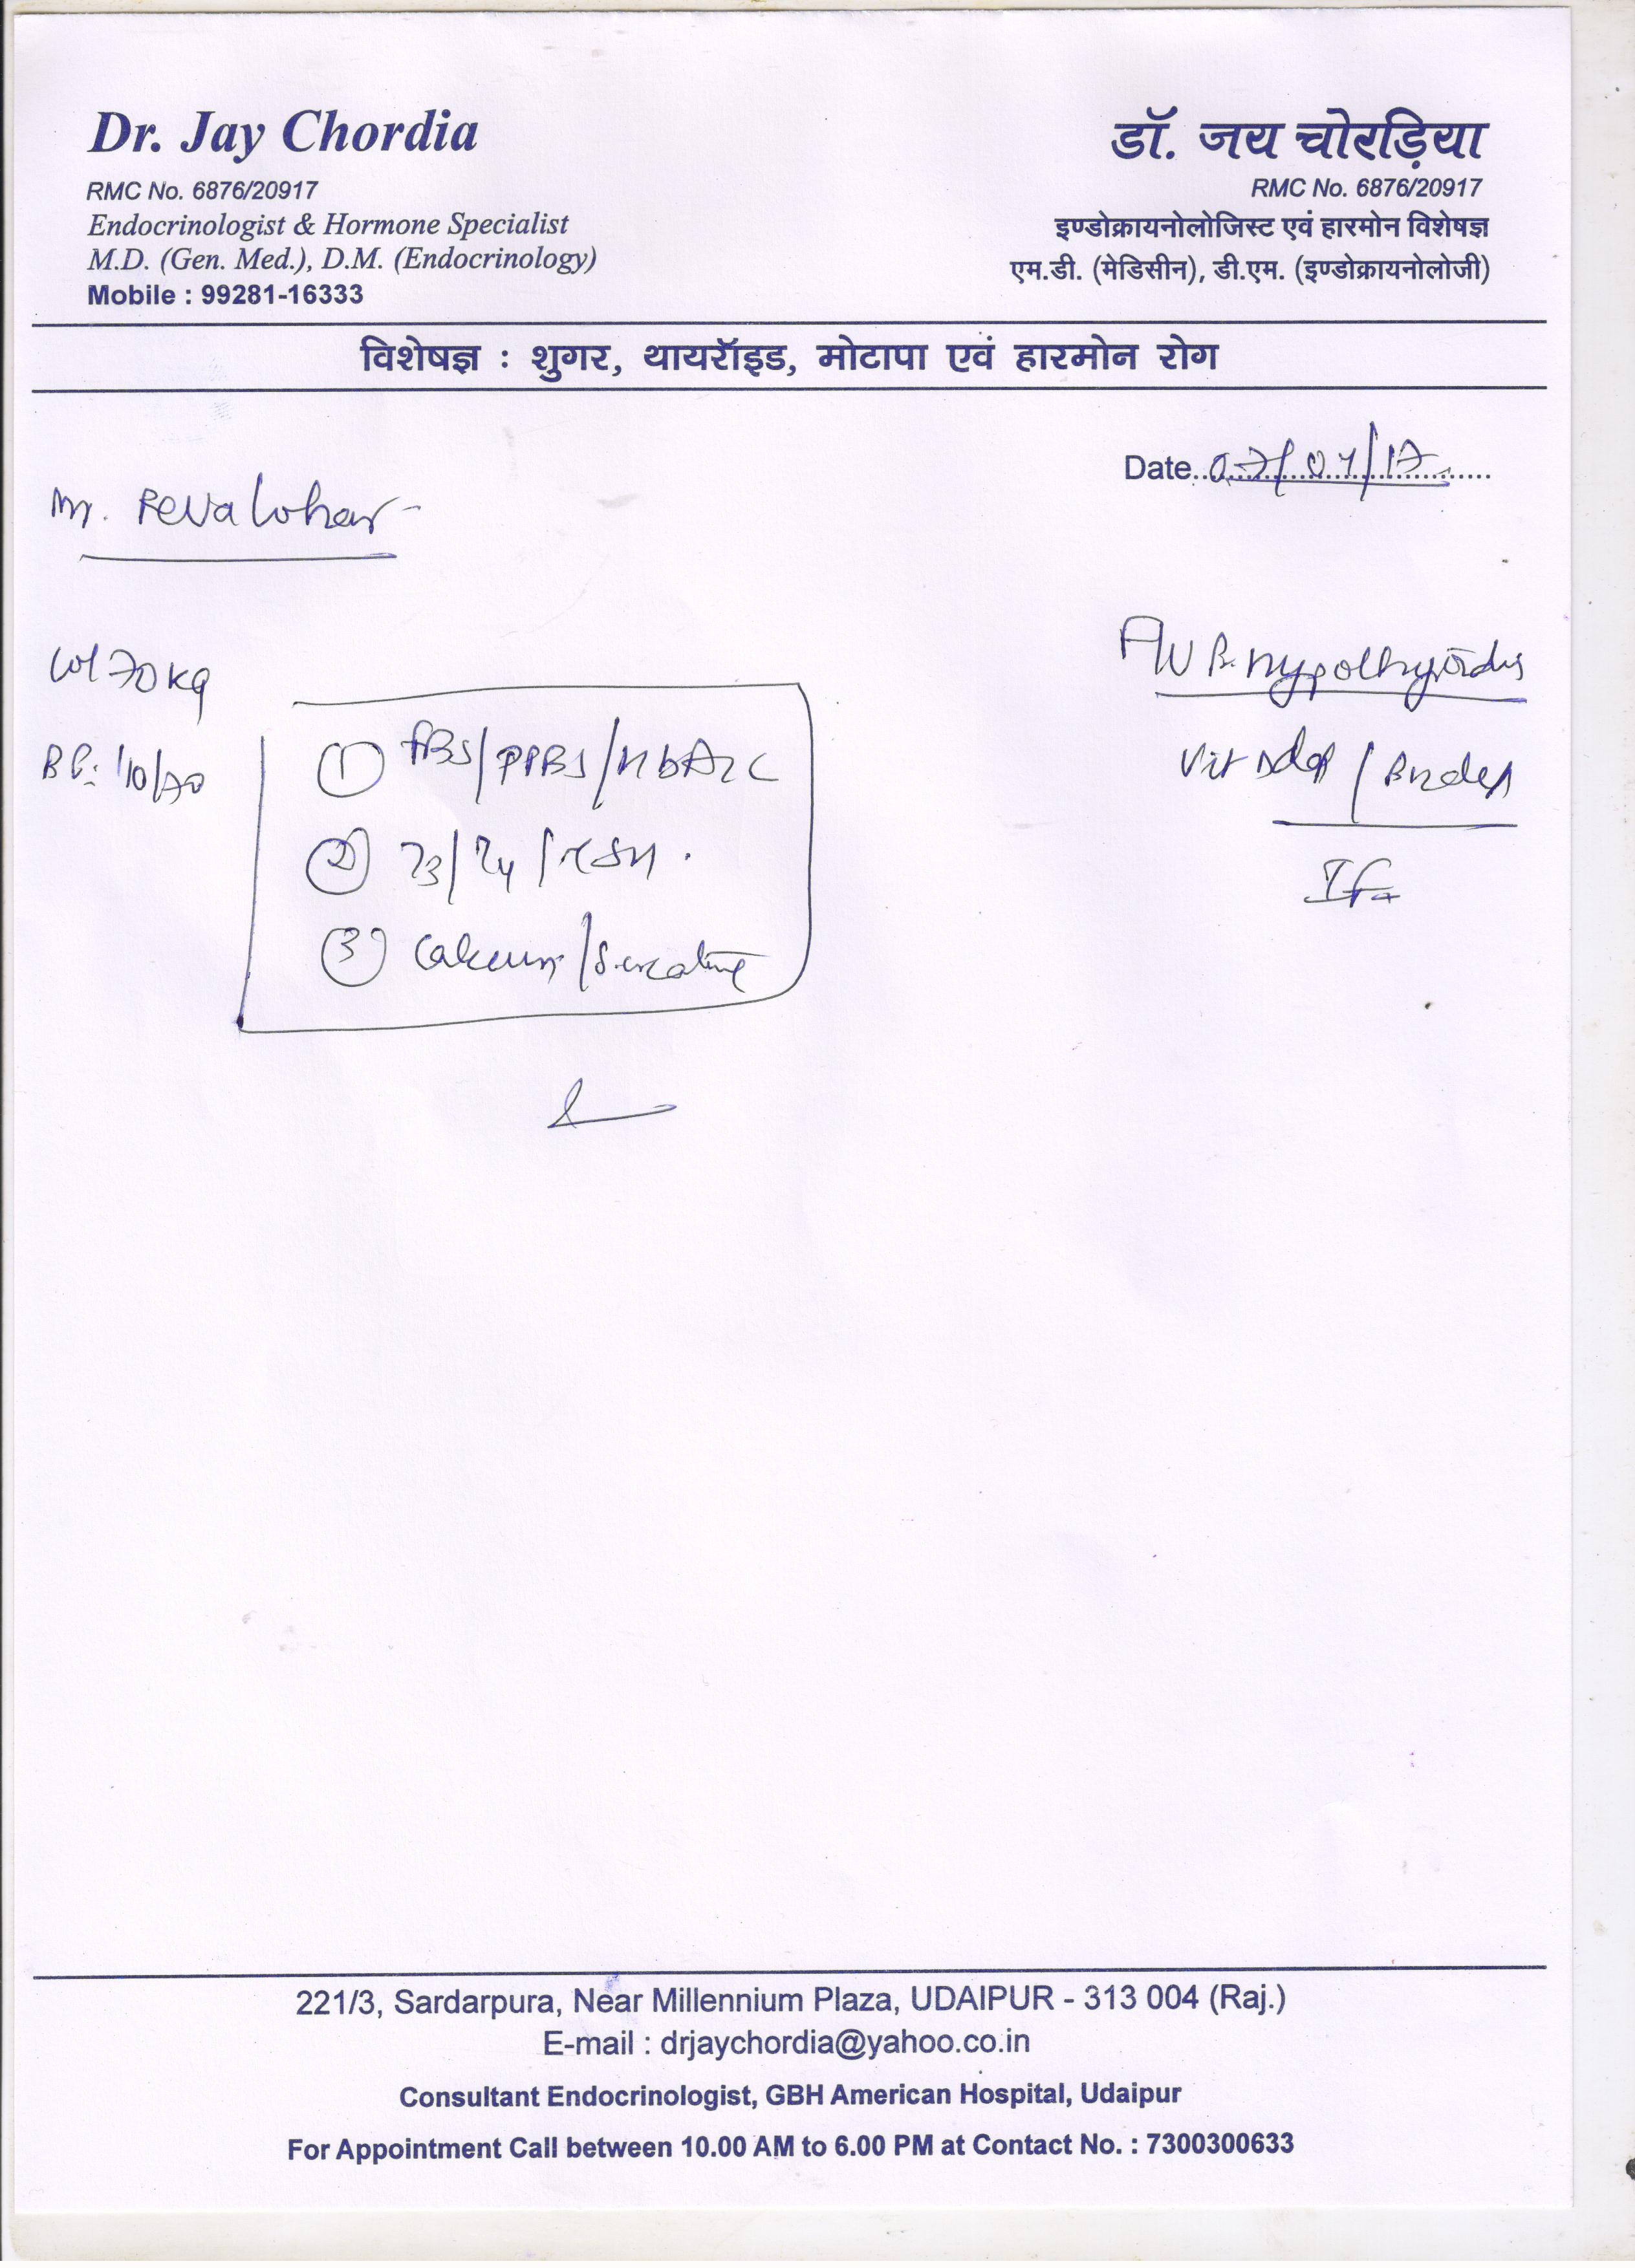 Dr. Jay Chordia
RMC No. 6876/20917
Endocrinologist & Hormone Specialist
M.D. (Gen. Med.), D.M. (Endocrinology)
Mobile : 99281-16333
डॉ. जय चोरड़िया
RMC No. 6876/20917
इण्डोक्रायनोलोजिस्ट एवं हारमोन विशेषज्ञ
एम.डी. (मेडिसीन), डी.एम. (इण्डोक्रायनोलोजी)
विशेषज्ञ : शुगर, थायरॉइड, मोटापा एवं हारमोन रोग
Date 07/07/17
Reva Lohar
Wt 70 kg
BP: 110/70
① FBS/PPBS/HbA1c
② T3/T4/TSH.
③ Calcium/S.creatine
Hypothyroidis
Vit D def / B12 def
221/3, Sardarpura, Near Millennium Plaza, UDAIPUR - 313 004 (Raj.)
E-mail : drjaychordia@yahoo.co.in
Consultant Endocrinologist, GBH American Hospital, Udaipur
For Appointment Call between 10.00 AM to 6.00 PM at Contact No. : 7300300633